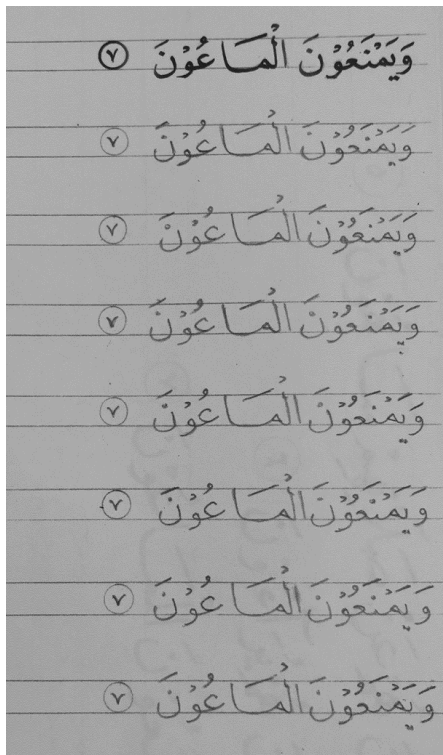 وَيَمْنَعُوْنَ الْمَاعُوْنَ ٧
وَيَمْنَعُوْنَ الْمَاعُوْنَ ٧
وَيَمْنَعُوْنَ الْمَاعُوْنَ ٧
وَيَمْنَعُوْنَ الْمَاعُوْنَ ٧
وَيَمْنَعُوْنَ الْمَاعُوْنَ ٧
وَيَمْنَعُوْنَ الْمَاعُوْنَ ٧
وَيَمْنَعُوْنَ الْمَاعُوْنَ ٧
وَيَمْنَعُوْنَ الْمَاعُوْنَ ٧